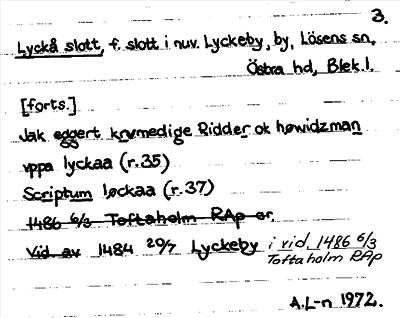 3.
Lyckå slott, f. slott i nuv. Lyckeby, by, Lösens sn,
Östra hd, Blek.l.
[forts.]
Jak eggert krvmedige Ridder ok høwidzman
vppa lyckaa (r.35)
Scriptum løckaa (r.37)
1486 6/3 Toftaholm RAp or.
Vid. av 1484 20/7 Lyckeby i vid. 1486 6/3
Toftaholm RAp
A.L-n 1972.